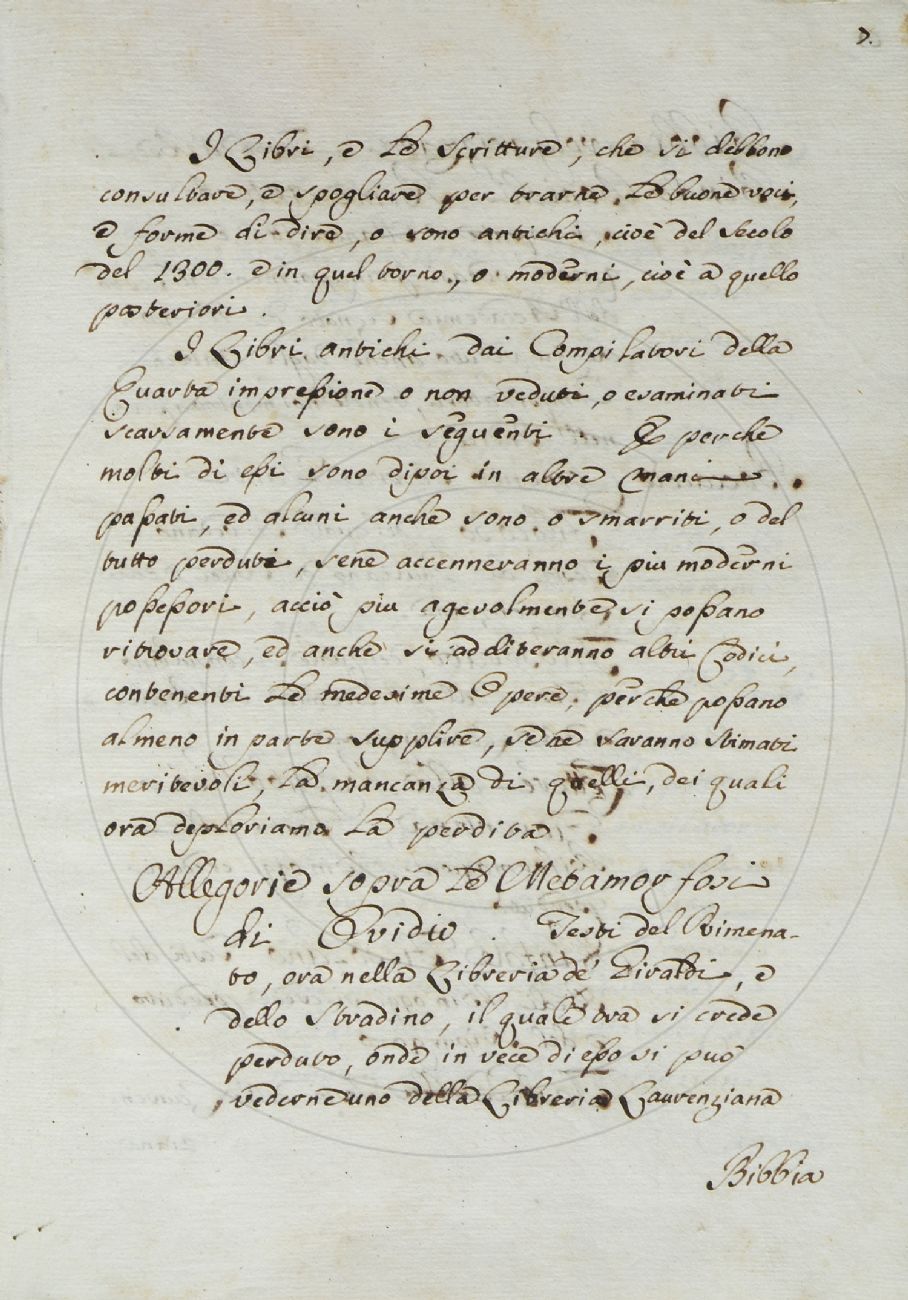 7.
I Libri, e Le Scritture, che si debbono
consultare, e spogliare per trarne Le buone voci,
e forme di dire, o sono antichi, cioè del Secolo
del 1300. e in quel torno, o moderni, cioè a quello
posteriori.
I Libri antichi dai Compilatori della
Quarta impressione o non veduti, o esaminati
scarsamente sono i seguenti. E perche
molti di essi sono dipoi in altre mani
passati, ed alcuni anche sono o smarriti, o del
tutto perduti, sene accenneranno i piu moderni
possessori, acciò piu agevolmente si possano
ritrovare, ed anche si additeranno altri Codici,
contenenti Le medesime Opere, perche possano
almeno in parte supplire, se ne saranno stimati
meritevoli, La mancanza di quelli, dei quali
ora deploriamo La perdita.
Allegorie sopra Le Metamorfosi
di Ovidio. Testi del Rimena-
to, ora nella Libreria de' Giraldi, e
dello Stradino, il quale ora si crede
perduto, onde in vece di esso si può
vederne uno della Libreria Laurenziana
Bibbia